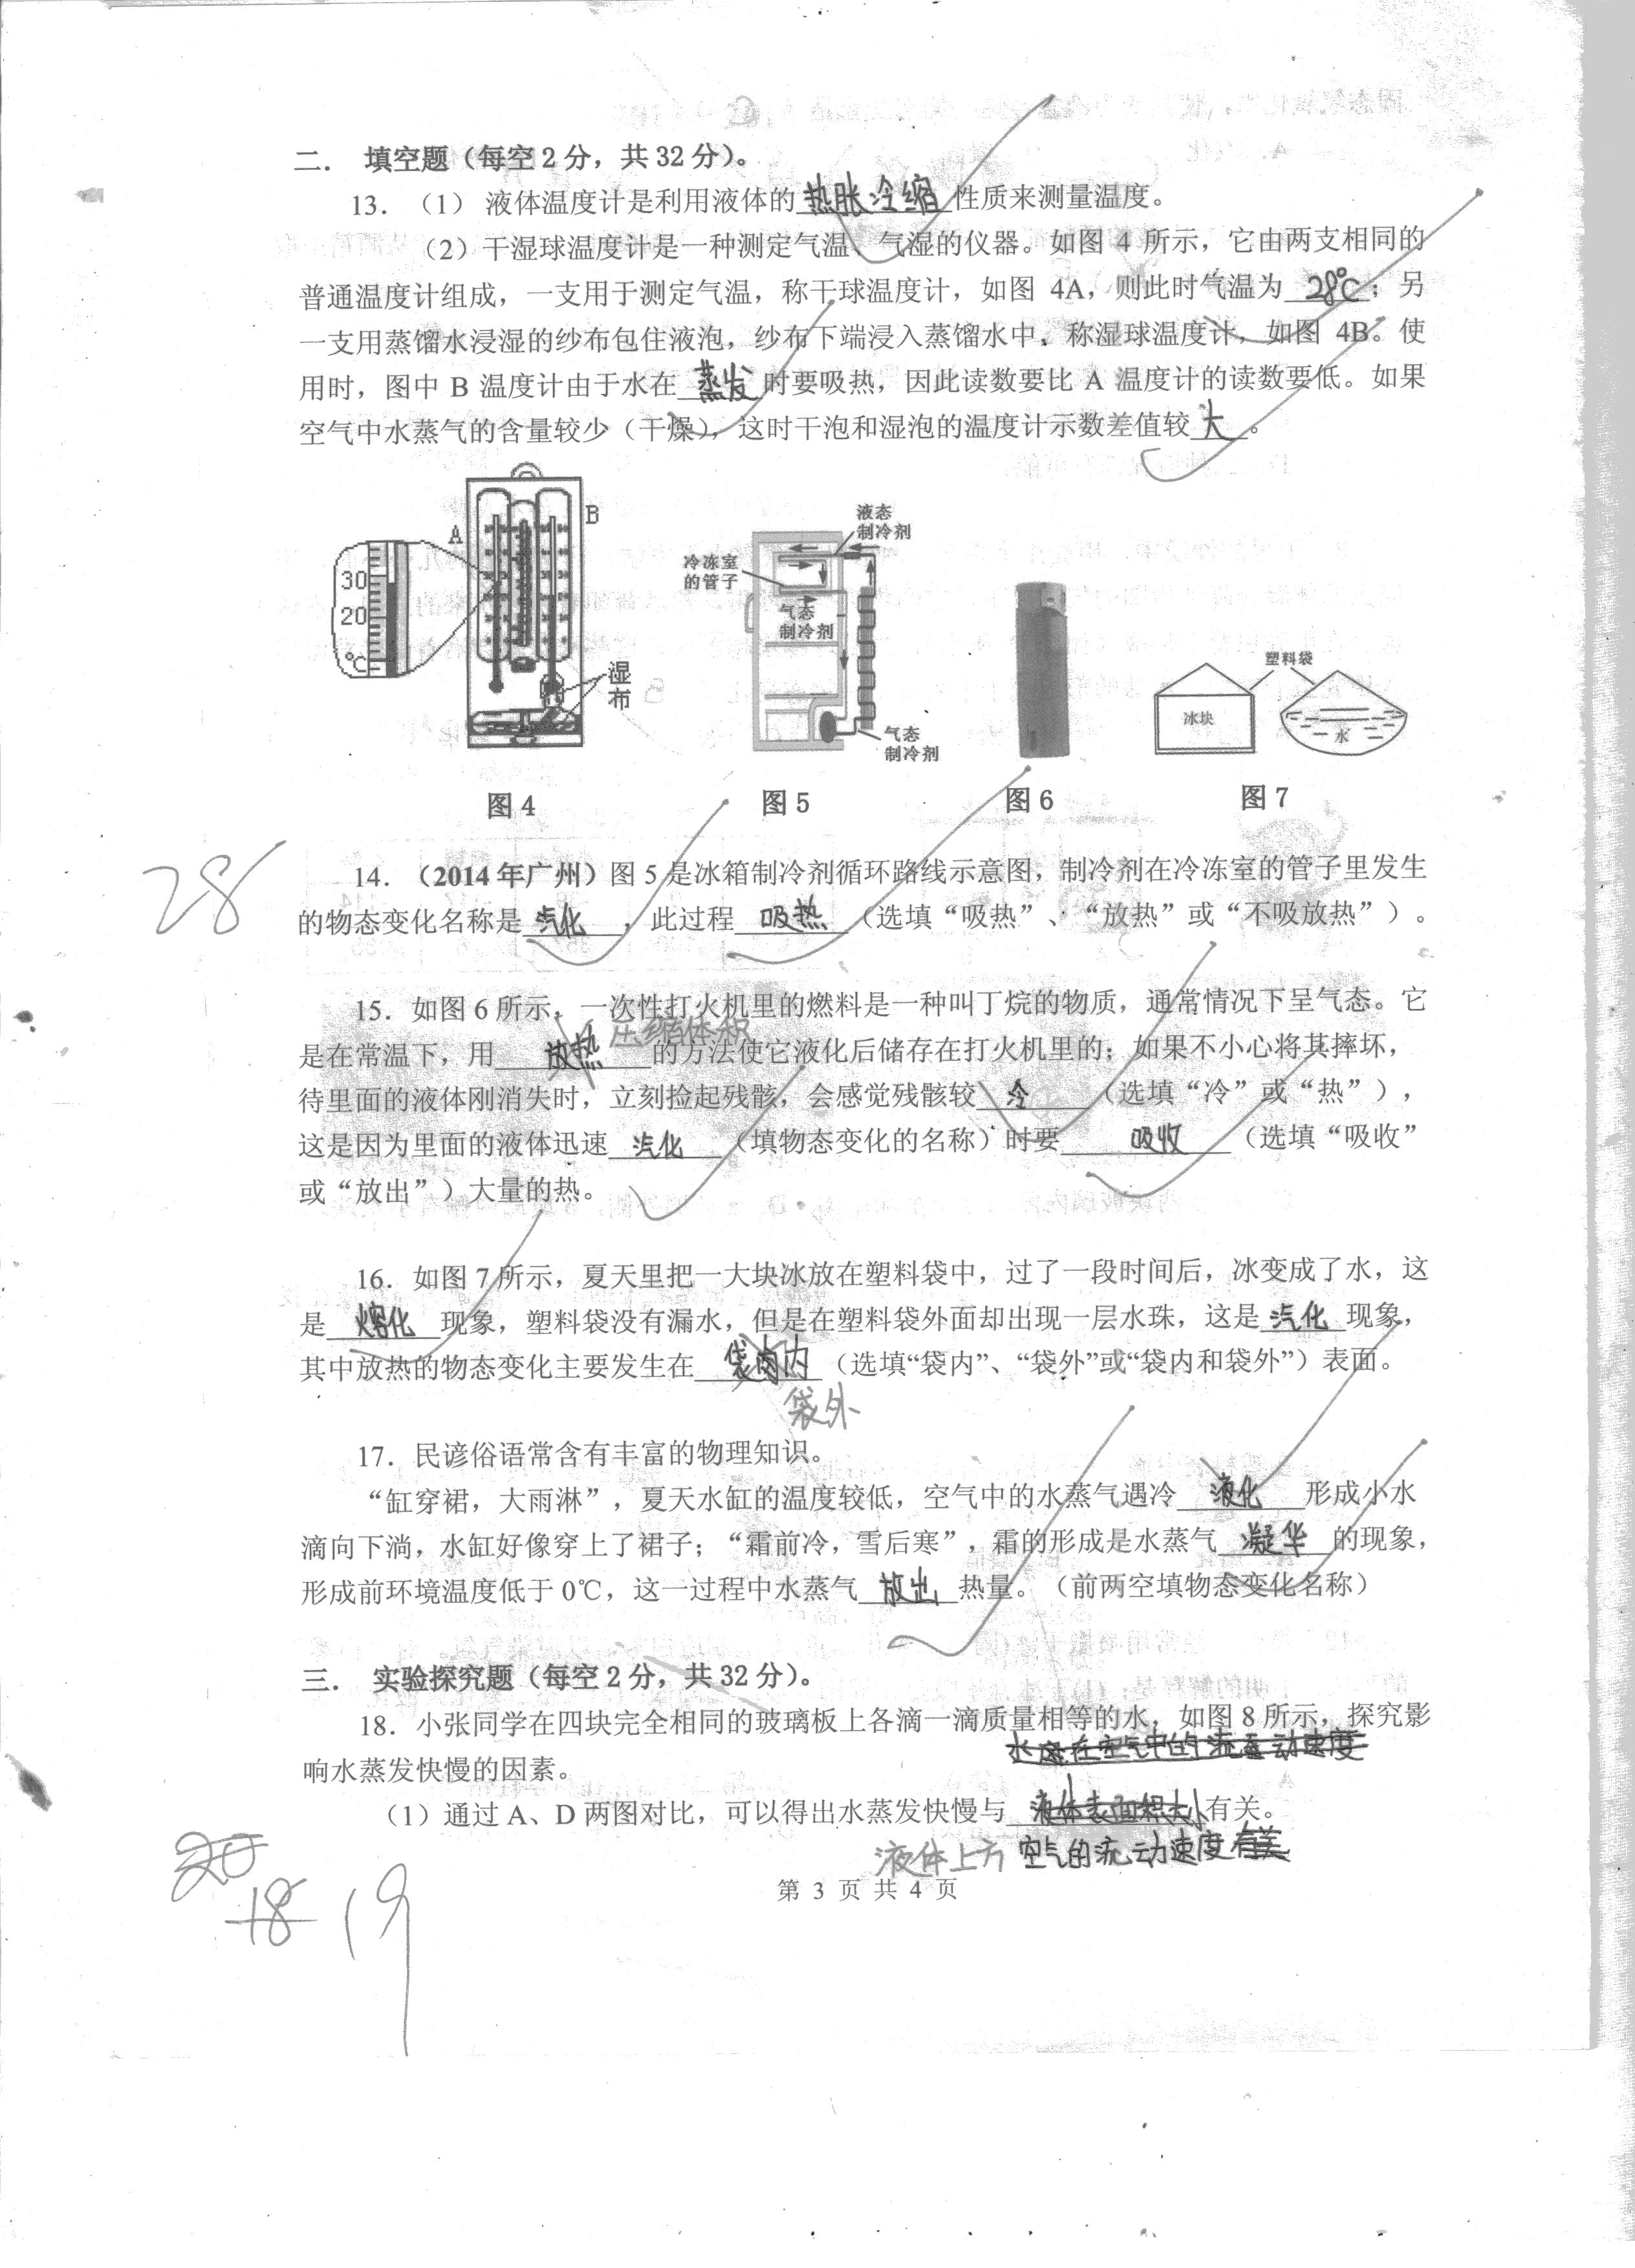 二． 填空题（每空2分，共32分）。
13．（1） 液体温度计是利用液体的 热胀冷缩 性质来测量温度。
（2）干湿球温度计是一种测定气温、气湿的仪器。如图 4 所示，它由两支相同的
普通温度计组成，一支用于测定气温，称干球温度计，如图 4A，则此时气温为 28℃；另
一支用蒸馏水浸湿的纱布包住液泡，纱布下端浸入蒸馏水中，称湿球温度计，如图 4B。使
用时，图中 B 温度计由于水在 蒸发 时要吸热，因此读数要比 A 温度计的读数要低。如果
空气中水蒸气的含量较少（干燥），这时干泡和湿泡的温度计示数差值较 大 。
A
B
30
20
℃
湿布
冷冻室的管子
液态制冷剂
气态制冷剂
气态制冷剂
塑料袋
冰块
水
图 4 图 5 图 6 图 7
28
14．（2014 年广州）图 5 是冰箱制冷剂循环路线示意图，制冷剂在冷冻室的管子里发生
的物态变化名称是 汽化 ，此过程 吸热 （选填“吸热”、“放热”或“不吸放热”）。
15．如图 6 所示，一次性打火机里的燃料是一种叫丁烷的物质，通常情况下呈气态。它
压缩体积
是在常温下，用 放热 的方法使它液化后储存在打火机里的；如果不小心将其摔坏，
待里面的液体刚消失时，立刻捡起残骸，会感觉残骸较 冷 （选填“冷”或“热”），
这是因为里面的液体迅速 汽化 （填物态变化的名称）时要 吸收 （选填“吸收”
或“放出”）大量的热。
16．如图 7 所示，夏天里把一大块冰放在塑料袋中，过了一段时间后，冰变成了水，这
是 熔化 现象，塑料袋没有漏水，但是在塑料袋外面却出现一层水珠，这是 汽化 现象，
其中放热的物态变化主要发生在 袋内 （选填“袋内”、“袋外”或“袋内和袋外”）表面。
袋外
17．民谚俗语常含有丰富的物理知识。
“缸穿裙，大雨淋”，夏天水缸的温度较低，空气中的水蒸气遇冷 液化 形成小水
滴向下淌，水缸好像穿上了裙子；“霜前冷，雪后寒”，霜的形成是水蒸气 凝华 的现象，
形成前环境温度低于 0℃，这一过程中水蒸气 放出 热量。（前两空填物态变化名称）
三． 实验探究题（每空2分，共32分）。
18．小张同学在四块完全相同的玻璃板上各滴一滴质量相等的水，如图 8 所示，探究影
响水蒸发快慢的因素。
（1）通过 A、D 两图对比，可以得出水蒸发快慢与 液体表面积大小 有关。
液体上方 空气的流动速度有关
第 3 页 共 4 页
18 19